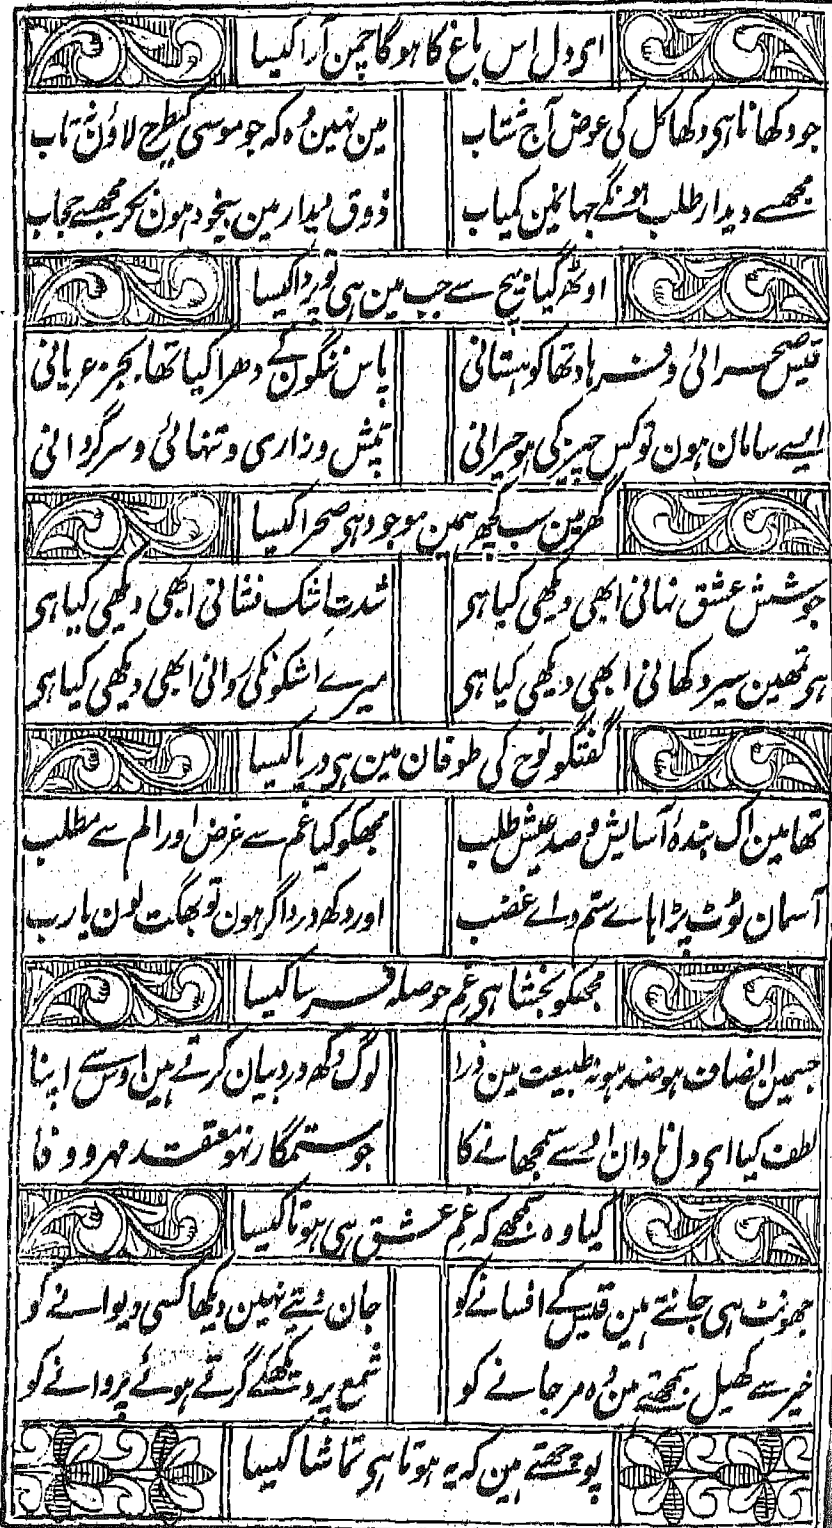 ای دل اس باغ کا ہوگا چمن آرا کیسا
جو دکھانا ہی دکھا کل کی عوض آج شتاب
مین نہین وہ کہ جو موسی کیطرح لاؤن نہ تاب
مجھسے دیدار طلب ہونگے جہانمین کمیاب
ذوق دیدار مین بیخود ہون نکر مجھسے حجاب
اوٹھ گیا بیچ سے جب مین ہی تو پردا کیسا
قیس صحرائی و فرہاد تھا کوہستانی
پاس ننگون کے دھرا کیا تھا بجز عریانی
ایسے سامان ہون تو کس چیز کی ہو حیرانی
تپش و زاری و تنہائی و سرگردانی
گھر مین سب کچھ ہمین موجود ہی صحرا کیسا
جوشش عشق نہانی ابھی دیکھی کیا ہی
شدت اشک فشانی ابھی دیکھی کیا ہی
ہر تمھین سیر دکھانی ابھی دیکھی کیا ہی
میرے اشکونکی روانی ابھی دیکھی کیا ہی
گفتگو نوح کی طوفان مین ہی دریا کیسا
تھا مین اک بندۂ آسایش و صد عیش طلب
مجھکو کیا غم سے غرض اور الم سے مطلب
آسمان ٹوٹ پڑا ہاے ستم واے غضب
اور دکھ درد اگر ہون تو بھگت لون یارب
مجکو بخشا ہی غم حوصلہ فرسا کیسا
جسمین انصاف ہو ضد ہو نہ طبیعت مین ذرا
لوگ دکھ درد بیان کرتے ہین اوس سے اپنا
لطف کیا ای دل نادان اوسے سمجھانے کا
جو ستمگار نہو معتقد مہر و وفا
کیا وہ سمجھے کہ غم عشق ہی ہوتا کیسا
جھونٹ ہی جانتے ہین قیس کے افسانے کو
جان دیتے نہین دیکھا کسی دیوانے کو
خیر سے کھیل سمجھتے ہین وہ مرجانے کو
شمع پر دیکھکے گرتے ہوئے پروانے کو
پوچھتے ہین کہ یہ ہوتا ہی تماشا کیسا